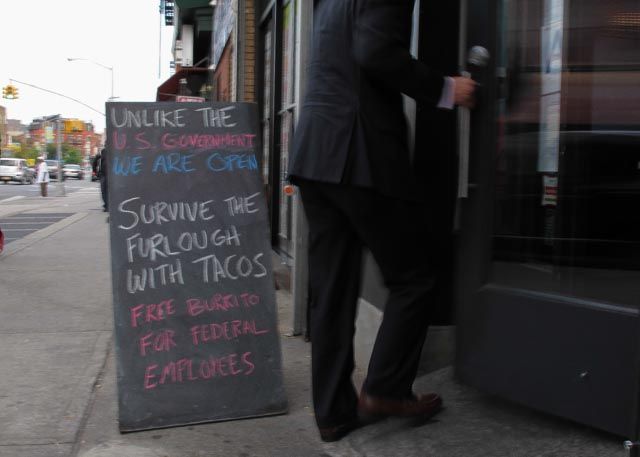 UNLIKE THE
U.S. GOVERNMENT
WE ARE OPEN
SURVIVE THE
FURLOUGH
WITH TACOS
FREE BURRITO
FOR FEDERAL
EMPLOYEES